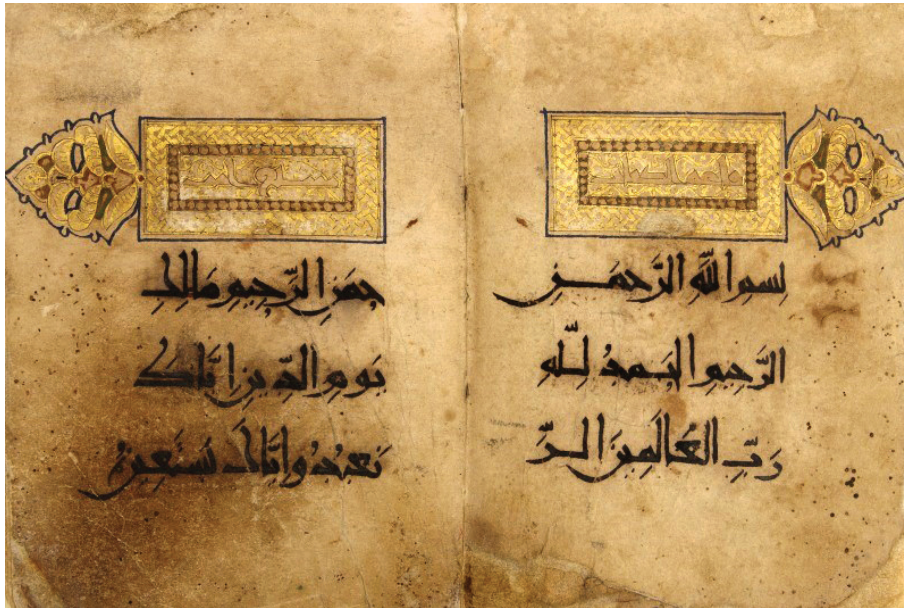 فاتحة الكتاب
بسمِ اللَّهِ الرَّحمَنِ
الرَّحِيمِ الحَمدُ لِلَّهِ
رَبِّ العَالَمِينَ الرَّ
سبع ايات
حمَنِ الرَّحِيمِ مَلِكِ
يَومِ الدِّينِ ايَّاكَ
نَعبُدُ وايَّاكَ نَستَعِينُ